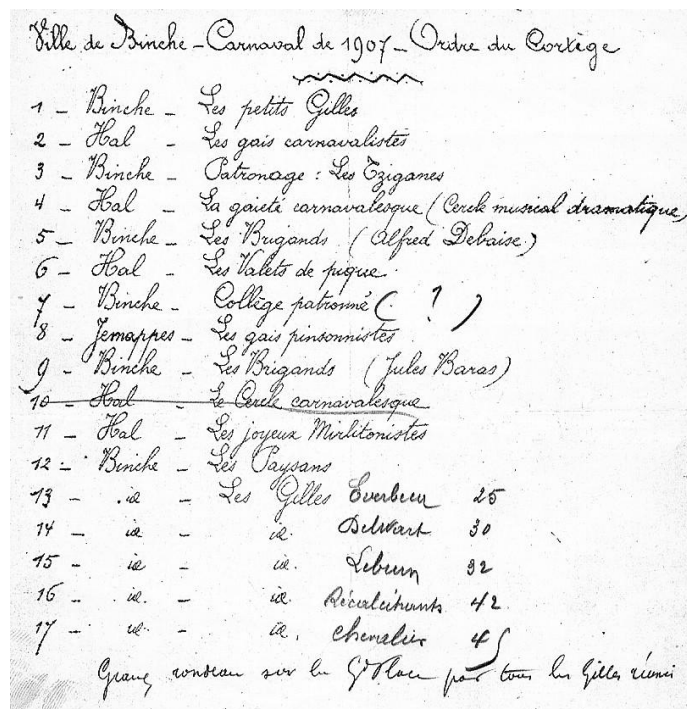 Ville de Binche - Carnaval de 1907 - Ordre du Cortège
1 - Binche - Les petits Gilles
2 - Hal - Les gais carnavalistes
3 - Binche - Patronage : Les Tziganes
4 - Hal - La gaieté carnavalesque (Cercle musical dramatique)
5 - Binche - Les Brigands (Alfred Debaise)
6 - Hal - Les Valets de pique
7 - Binche - Collège patronné ( ? )
8 - Jemappes - Les gais pinsonnistes
9 - Binche - Les Brigands (Jules Baras)
10 - Hal - Le Cercle carnavalesque
11 - Hal - Les joyeux Mirlitonistes
12 - Binche - Les Paysans
13 - id - Les Gilles 25
14 - id - id. Delwart 30
15 - id - id. 32
16 - id. - id. Récalcitrants 42
17 - id. - id. Chevalier 45
Grand rondeau sur la Gd Place par tous les Gilles réunis